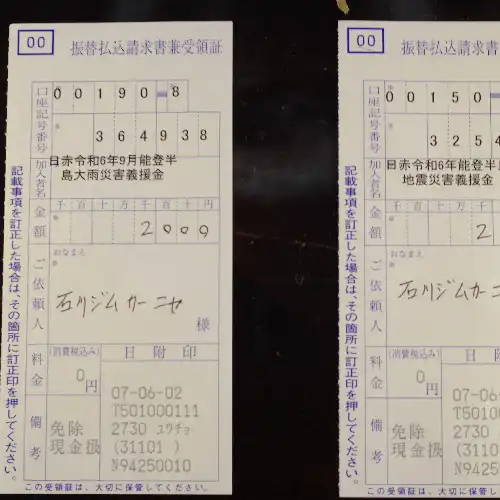 00
振替払込請求書兼受領証
口座記号番号
00190-8
364938
加入者名
日赤令和6年9月能登半
島大雨災害義援金
金額
千百十万千百十円
2000
ご依頼人
おなまえ
石川ジムカーニヤ
様
料金
(消費税込み)
0円
日附印
備考
免除
現金扱
07-06-02
T501000111
2730 ユウチョ
(31101 )
N94250010
記載事項を訂正した場合は、その箇所に訂正印を押してください。
この受領証は、大切に保管してください。
00
振替払込請求書
口座記号番号
00150-
3254
加入者名
日赤令和6年能登半
地震災害義援金
金額
千百十万千
2
ご依頼人
おなまえ
石川ジムカーニ
料金
(消費税込み)
0円
日
備考
免除
現金扱
07-06-
T5010
2730
(31101
N9425
記載事項を訂正した場合は、その箇所に訂正印を押してください。
この受領証は、大切に保管し